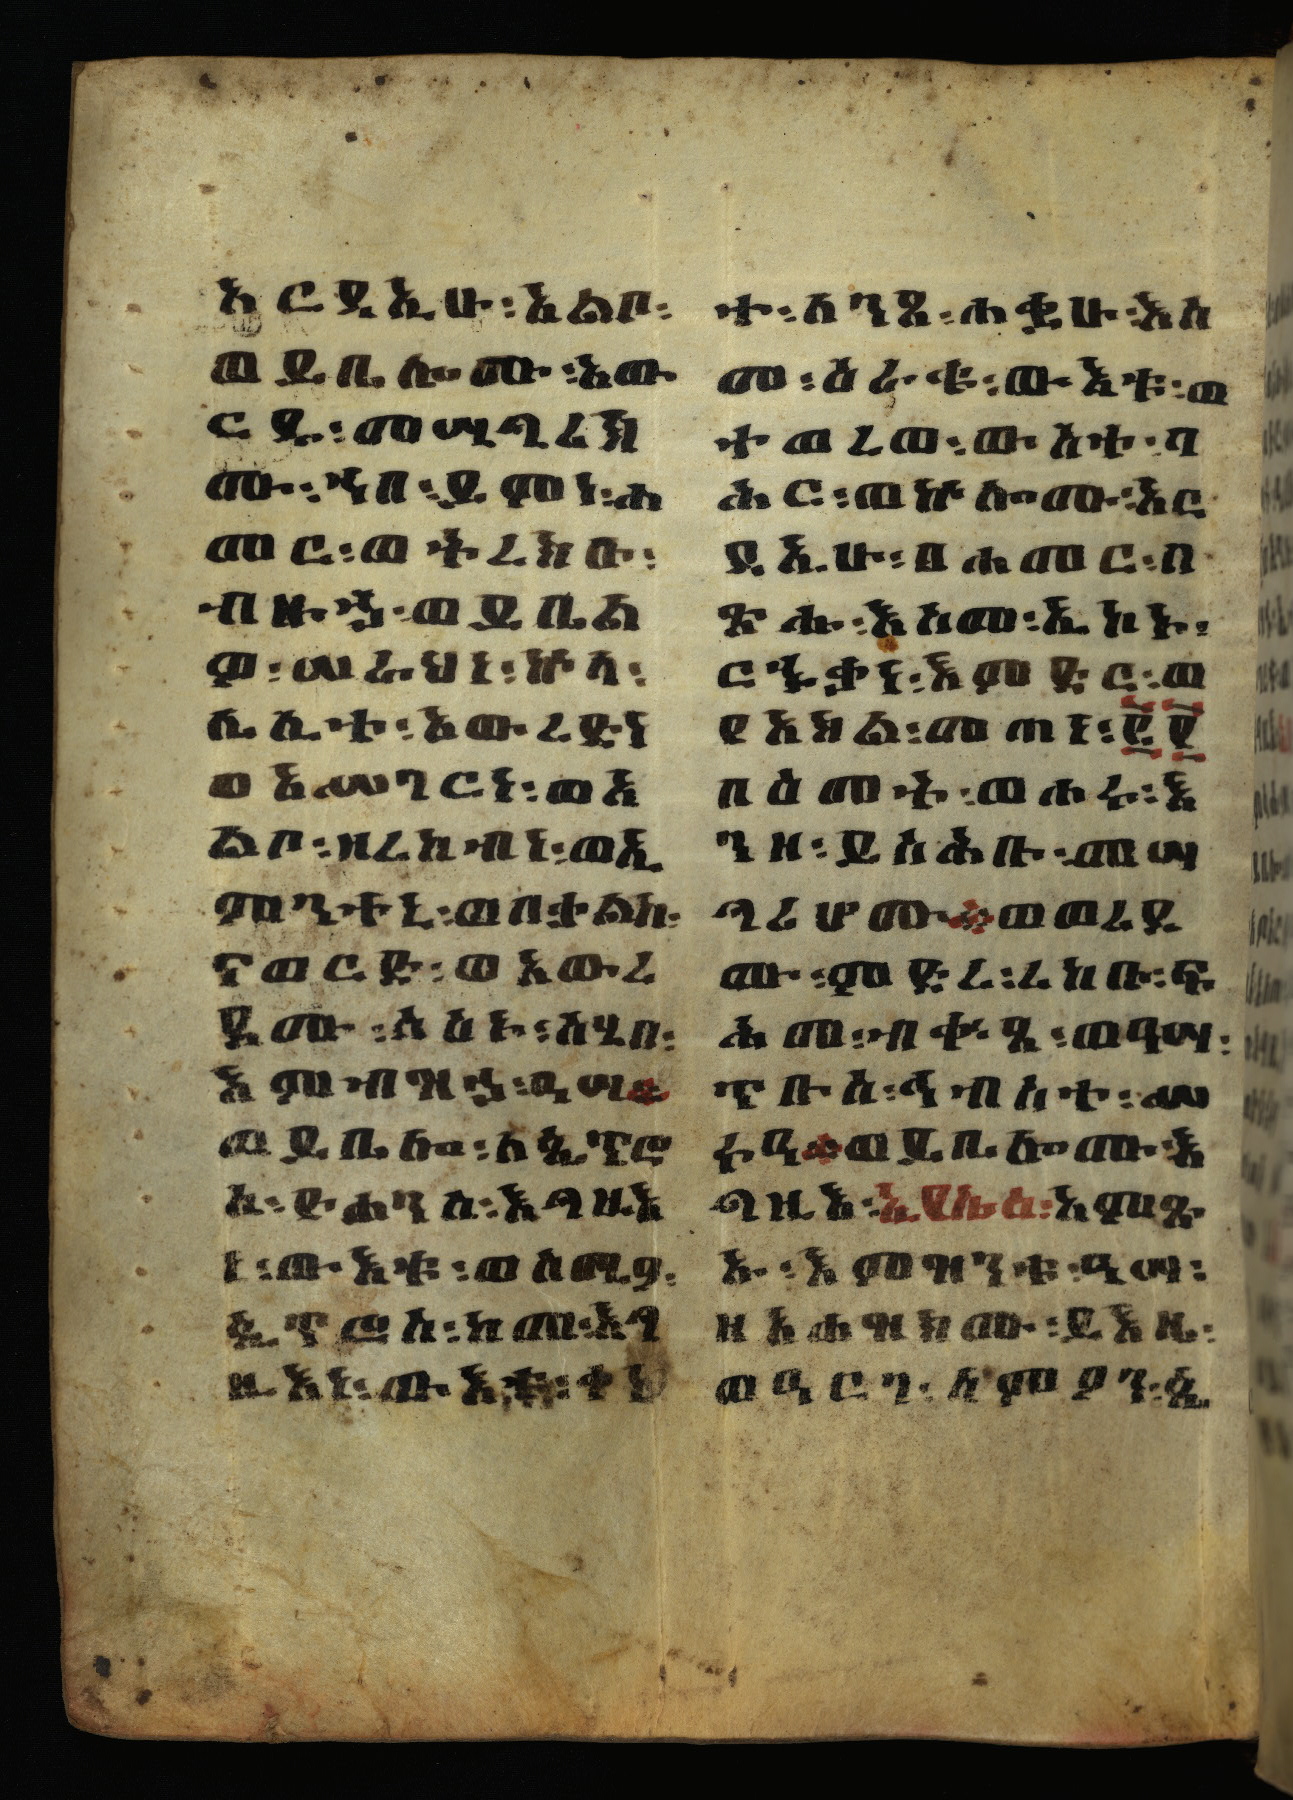 አርዳኢሁ፡አልቦ፡
ወይቤሎሙ፡አው
ርዱ፡መሣግሪክ
ሙ፡ኀበ፡የማነ፡ሐ
መር፡ወትረክቡ፡
ብዙኃ፡ወይቤል
ዎ፡መራህነ፡ኵሎ፡
ሌሊተ፡አውረድነ
ወአመግርነ፡ወአ
ልቦ፡ዘረከብነ፡ወኢ
ምንተኒ፡ወበቃልከ፡
ናወርድ፡ወአውረ
ዲሙ፡ስእኑ፡ስሂበ፡
እምብዝኃ፡ዓሣ።
ወይቤሎ፡ለጴጥሮ
ስ፡ዮሐንስ፡እግዚእ
ነ፡ውእቱ፡ወሰሚዖ፡
ጴጥሮስ፡ከመ፡እግ
ዚእነ፡ውእቱ፡ቀነ
ተ፡ሰንዱ፡ሐቌሁ፡እስ
መ፡ዕራቁ፡ውእቱ፡ወ
ተወረወ፡ውስተ፡ባ
ሕር፡ወኵሎሙ፡አር
ዳኢሁ፡በሐመር፡በ
ጽሑ፡እስመ፡ኢኮኑ፡
ርኁቃነ፡እምድር፡ወ
የአክል፡መጠነ፡፪፻
በዕመት፡ወሐሩ፡እ
ንዘ፡ይስሕቡ፡መሣ
ግሪሆሙ።ወወሪዶ
ሙ፡ምድረ፡ረከቡ፡ፍ
ሕመ፡ብቍጹ፡ወዓሣ፡
ጥቡስ፡ዲብስተ፡መ
ሩዓ።ወይቤሎሙ፡እ
ግዚእ፡ኢየሱስ፡አምጽ
ኡ፡እምዝንቱ፡ዓሣ፡
ዘአሐዝክሙ፡ይእዜ፡
ወዓርገ፡ስምዖን፡ጴ